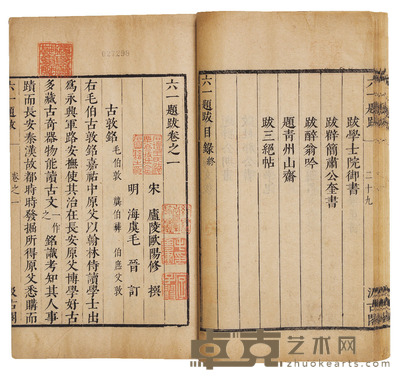 跋學士院御書
跋辟簡肅公奎書
跋醉翁吟
題青州山齋
跋三絕帖
六一題跋目錄終
二十九
六一題跋卷之一
宋 廬陵歐陽修 撰
明 海虞毛 晉 訂
古敦銘 毛伯敦 龔伯彝 伯庶父敦
右毛伯古敦銘嘉祐中原父以翰林侍讀學士出
為永興軍路安撫使其治在長安原父博學好古
多藏古奇器物能讀古文一作銘識考知其人事
蹟而長安秦漢故都時時發掘所得原父悉購而
六一題跋 卷之一 汲古閣
027299
卓克艺术网
www.zhuokearts.com